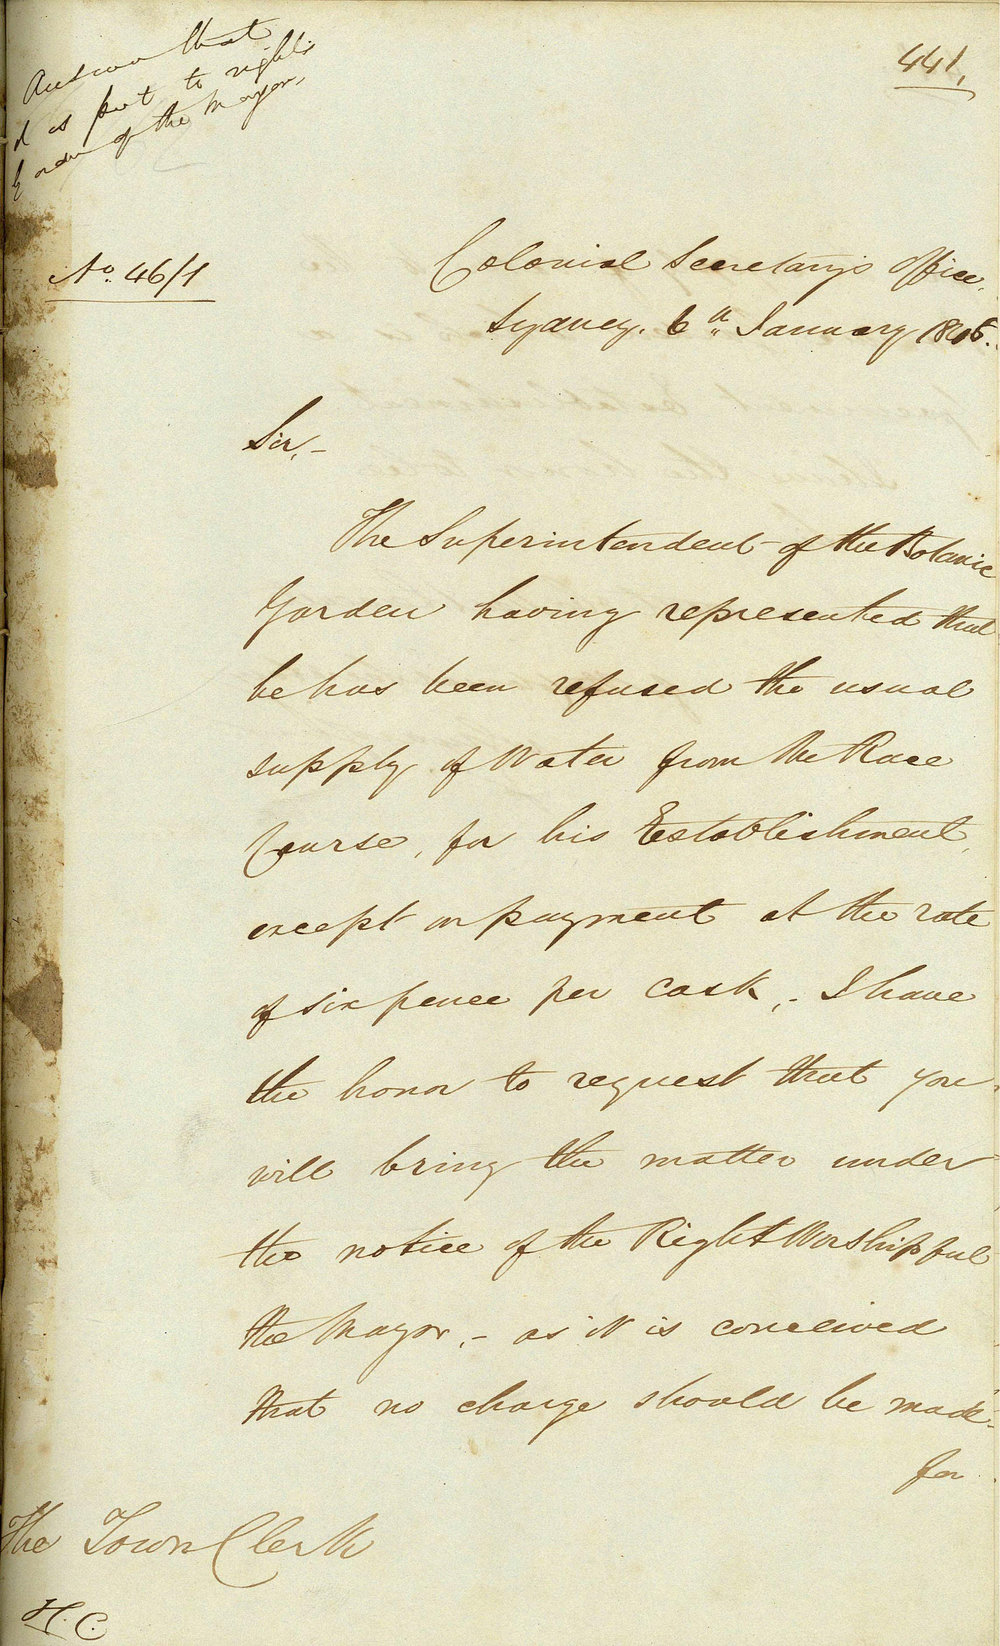 441,
Answer that
it is put to rights
by order of the Mayor,
No. 46/1
Colonial Secretary's Office,
Sydney. 6th January 1846.
Sir,-
The Superintendent of the Botanic
Garden having represented that
he has been refused the usual
supply of Water from the Race
Course, for his Establishment,
except on payment at the rate
of sixpence per cask,- I have
the honor to request that you
will bring the matter under
the notice of the Right Worshipful
the Mayor,- as it is conceived
that no charge should be made
for
The Town Clerk